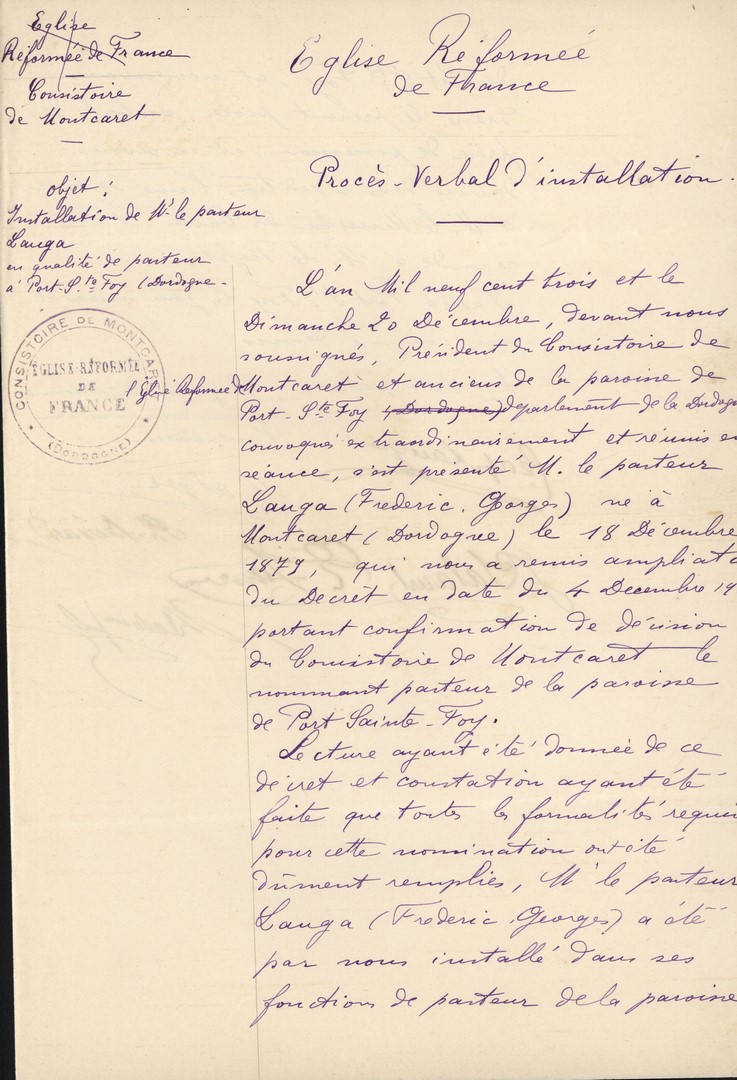 Eglise
Réformée de France
Consistoire
de Montcaret
objet :
Installation de Mr le pasteur
Lauga
en qualité de pasteur
à Port-Ste Foy (Dordogne -
CONSISTOIRE DE MONTCARET
EGLISE-RÉFORMÉE
DE
FRANCE
(DORDOGNE)
Eglise Réformée
de France
Procès-Verbal d'installation.
L'an Mil neuf cent trois et le
Dimanche 20 Décembre, devant nous
soussignés, Président du Consistoire de
l'Eglise Reformée de Montcaret et anciens de la paroisse de
Port-Ste Foy (Dordogne) departement de la Dordogne
convoqués extraordinairement et réunis en
séance, s'est présenté M. le pasteur
Lauga (Frederic, Georges) né à
Montcaret (Dordogne) le 18 Décembre
1879, qui nous a remis ampliat
du Decrèt en date du 4 Decembre 19
portant confirmation de décision
du Consistoire de Montcaret le
nommant pasteur de la paroisse
de Port Sainte-Foy.
Lecture ayant été donnée de ce
décret et constation ayant été
faite que toutes les formalités requi
pour cette nomination ont été
dûment remplies, Mr le pasteur
Lauga (Frederic, Georges) a été
par nous installé dans ses
fonctions de pasteur de la paroisse